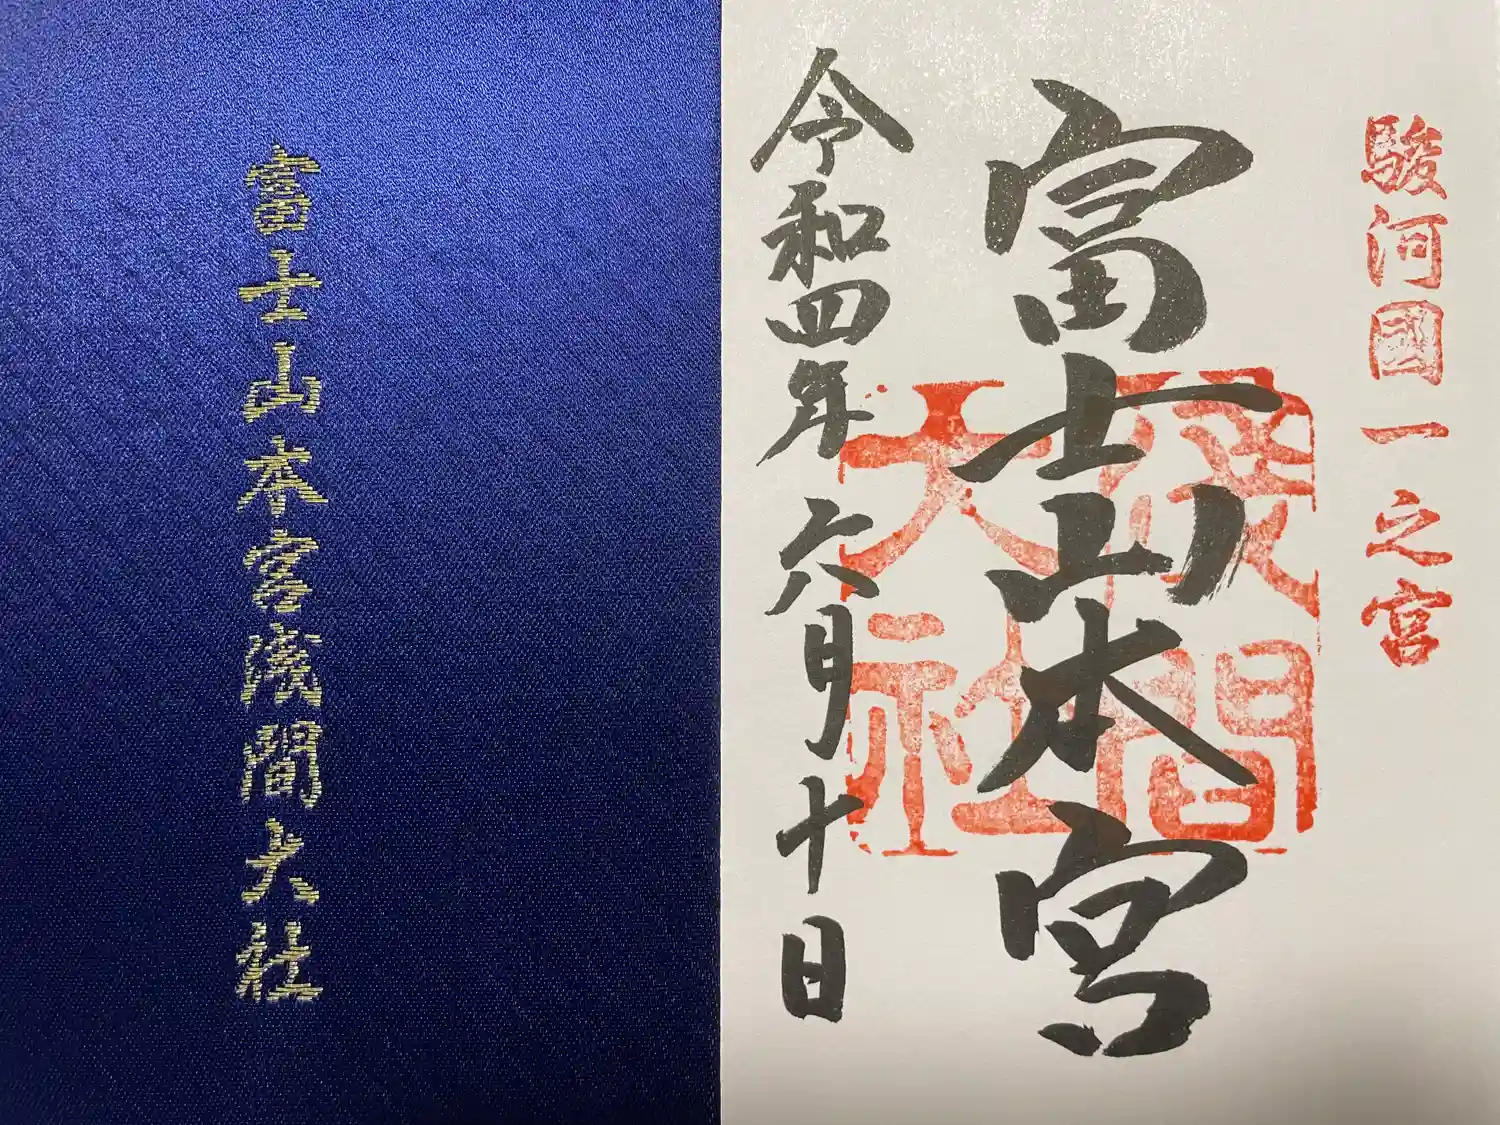 富士山本宮淺間大社
駿河國一之宮
富士山本宮
淺間大社
令和四年六月十日